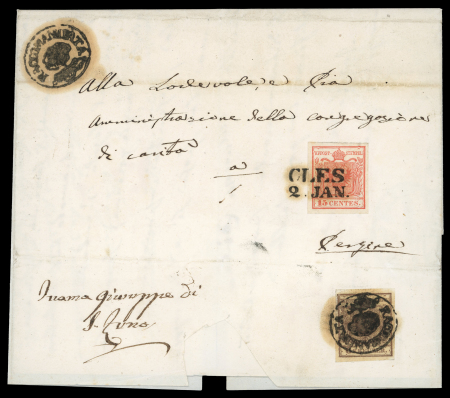 RACCOMANDATA
Alla Lodevole, e Pia
Amministrazione della congregazione
di carità
a
CLES
2. JAN.
15 CENTES.
Pergine
Giuseppe di
RACCOMANDATA